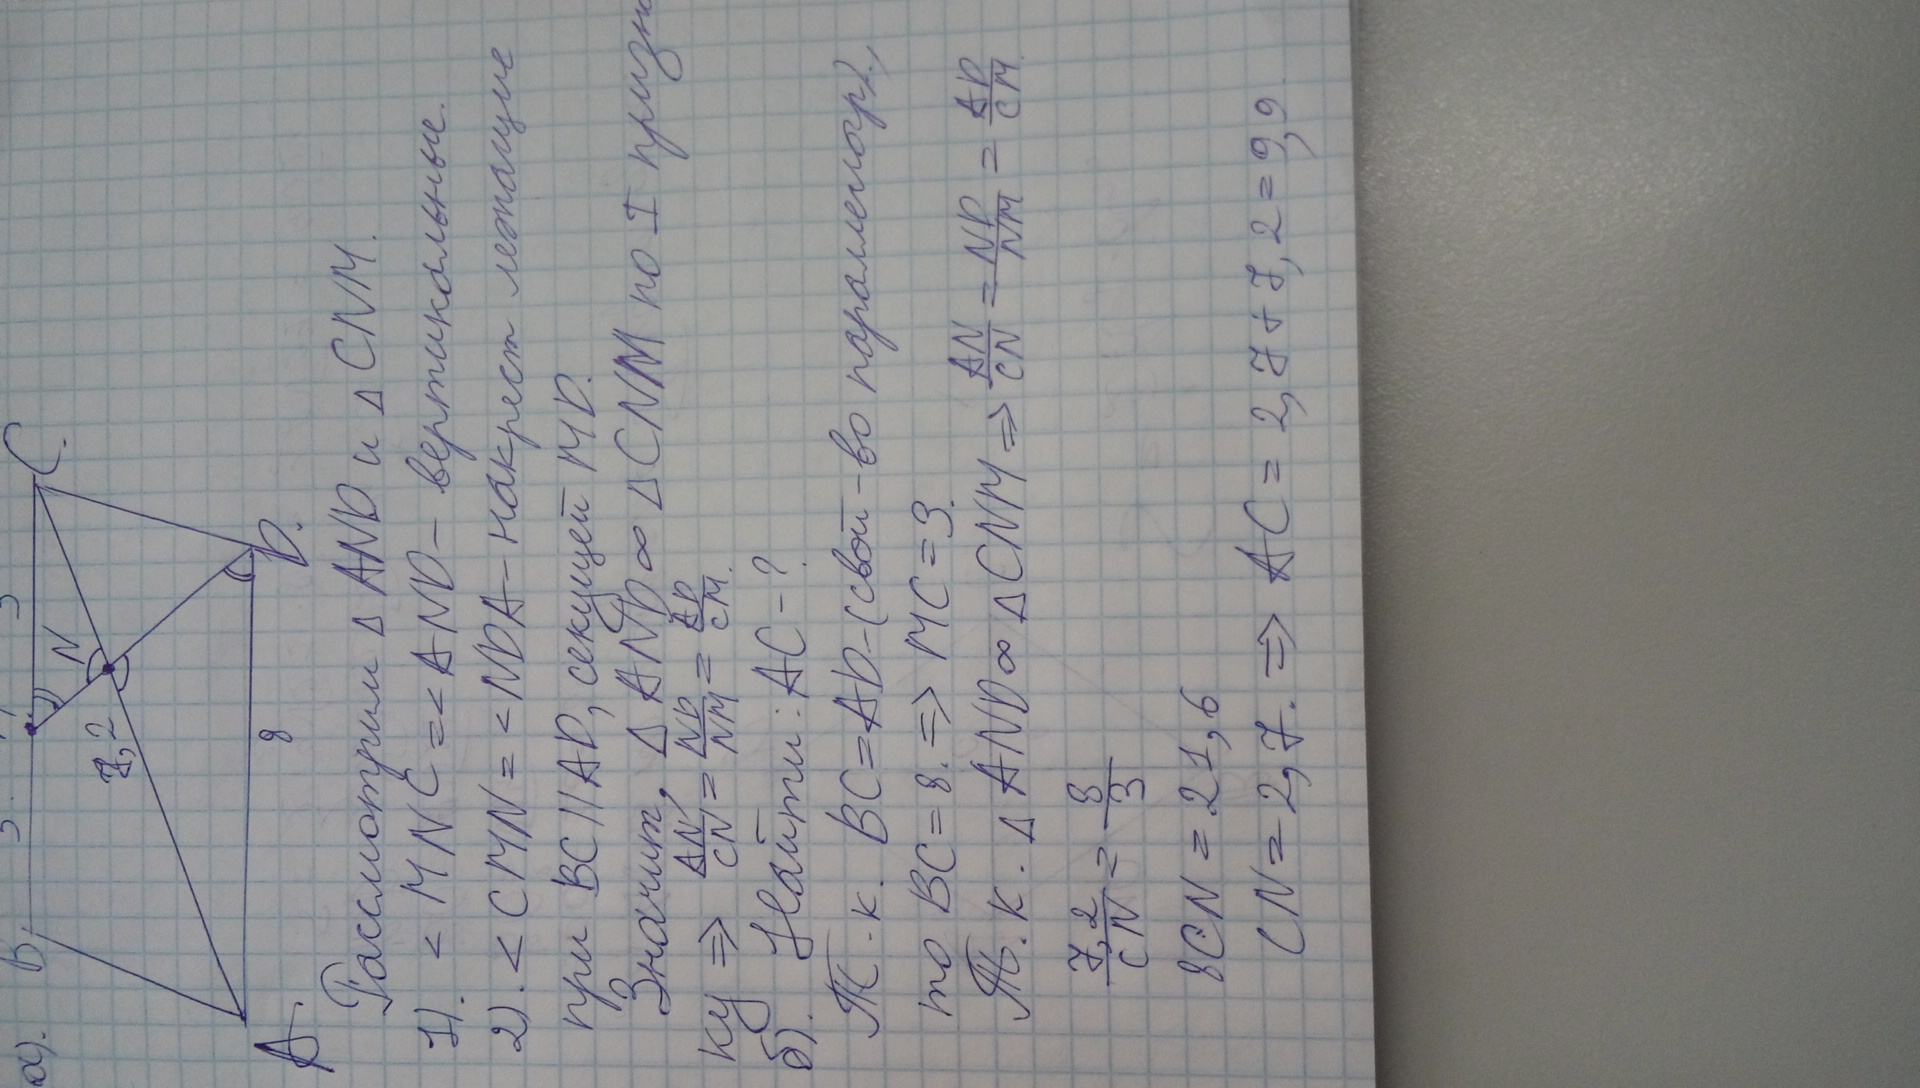 а).
B 5 3 C.
N
7,2
A 8 D.
Рассмотрим △ AND и △ CNM.
1). < MNC = < AND - вертикальные.
2). < CMN = < NDA - накрест лежащие
при BC || AD, секущей MD.
Значит, △ AND ∞ △ CNM по I призна
ку => AN/CN = ND/NM = AD/CM.
б). Найти: AC - ?
Т.к. BC = AD - (свой-во параллелогр),
то BC = 8. => MC = 3.
Т.к. △ AND ∞ △ CNM => AN/CN = ND/NM = AD/CM.
7,2/CN = 8/3
8CN = 21,6
CN = 2,7. => AC = 2,7 + 7,2 = 9,9